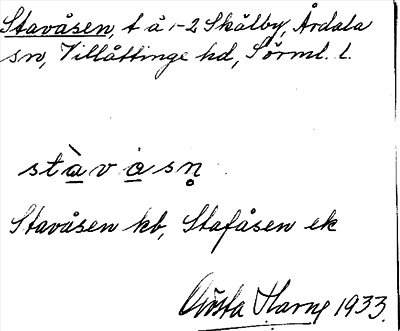 Stavåsen, t å 1-2 Skälby, Årdala
sn, Villåttinge hd, Sörml. l.
stàvåsn̥
Stavåsen kb, Stafåsen ek
Gösta Harne 1933.